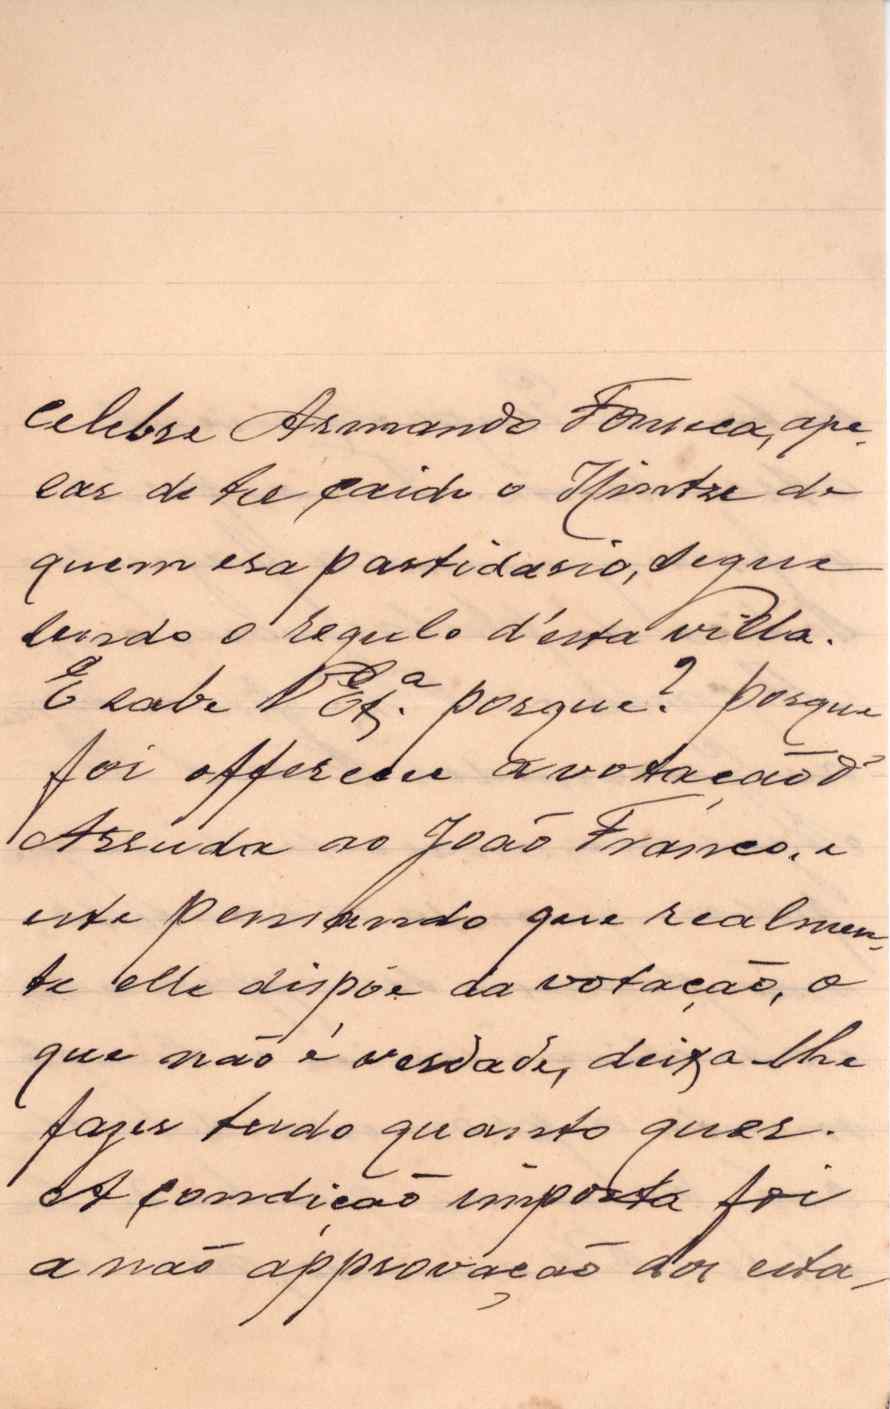 celebre Armando Fonseca, ape-
sar de ter caido o Hintze de
quem era partidario, segue
sendo o regulo d'esta villa.
E sabe V. Exª. porque? porque
foi offerecer a votação d'
Arruda ao João Franco, e
este pensando que realmen-
te elle dispõe da votação, o
que não é verdade, deixa-lhe
fazer tudo quanto quer.
A condição imposta foi
a não approvação dos esta-